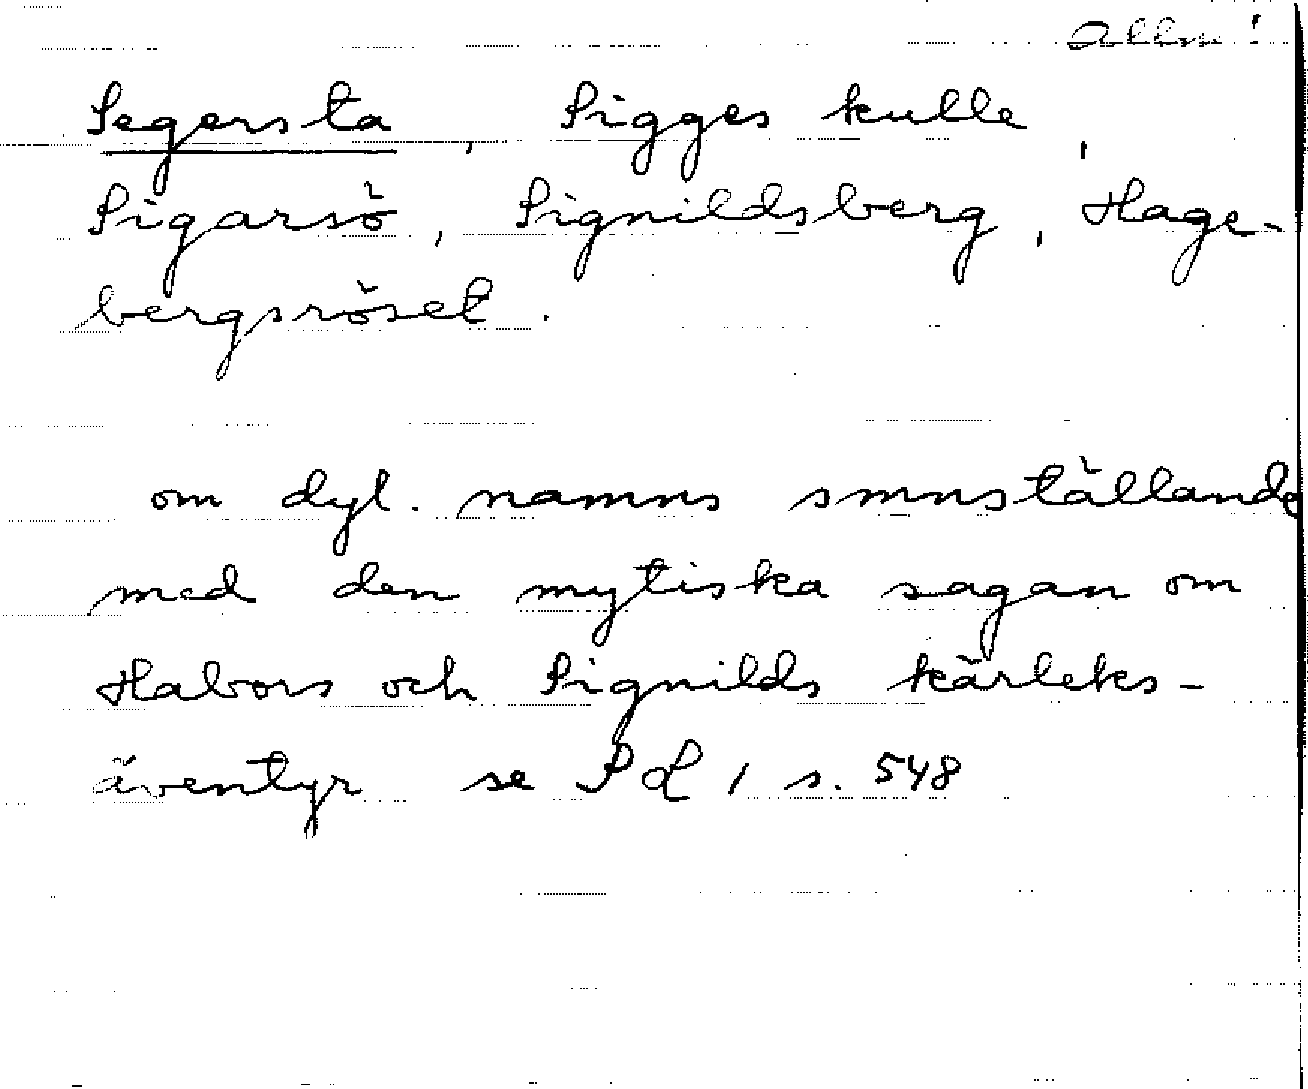 Allm!
Segersta, Sigges kulle,
Sigarsö, Signildsberg, Hage-
bergsröset.
om dyl. namns smnställande
med den mytiska sagan om
Habors och Signilds kärleks-
äventyr se SL 1 s. 548